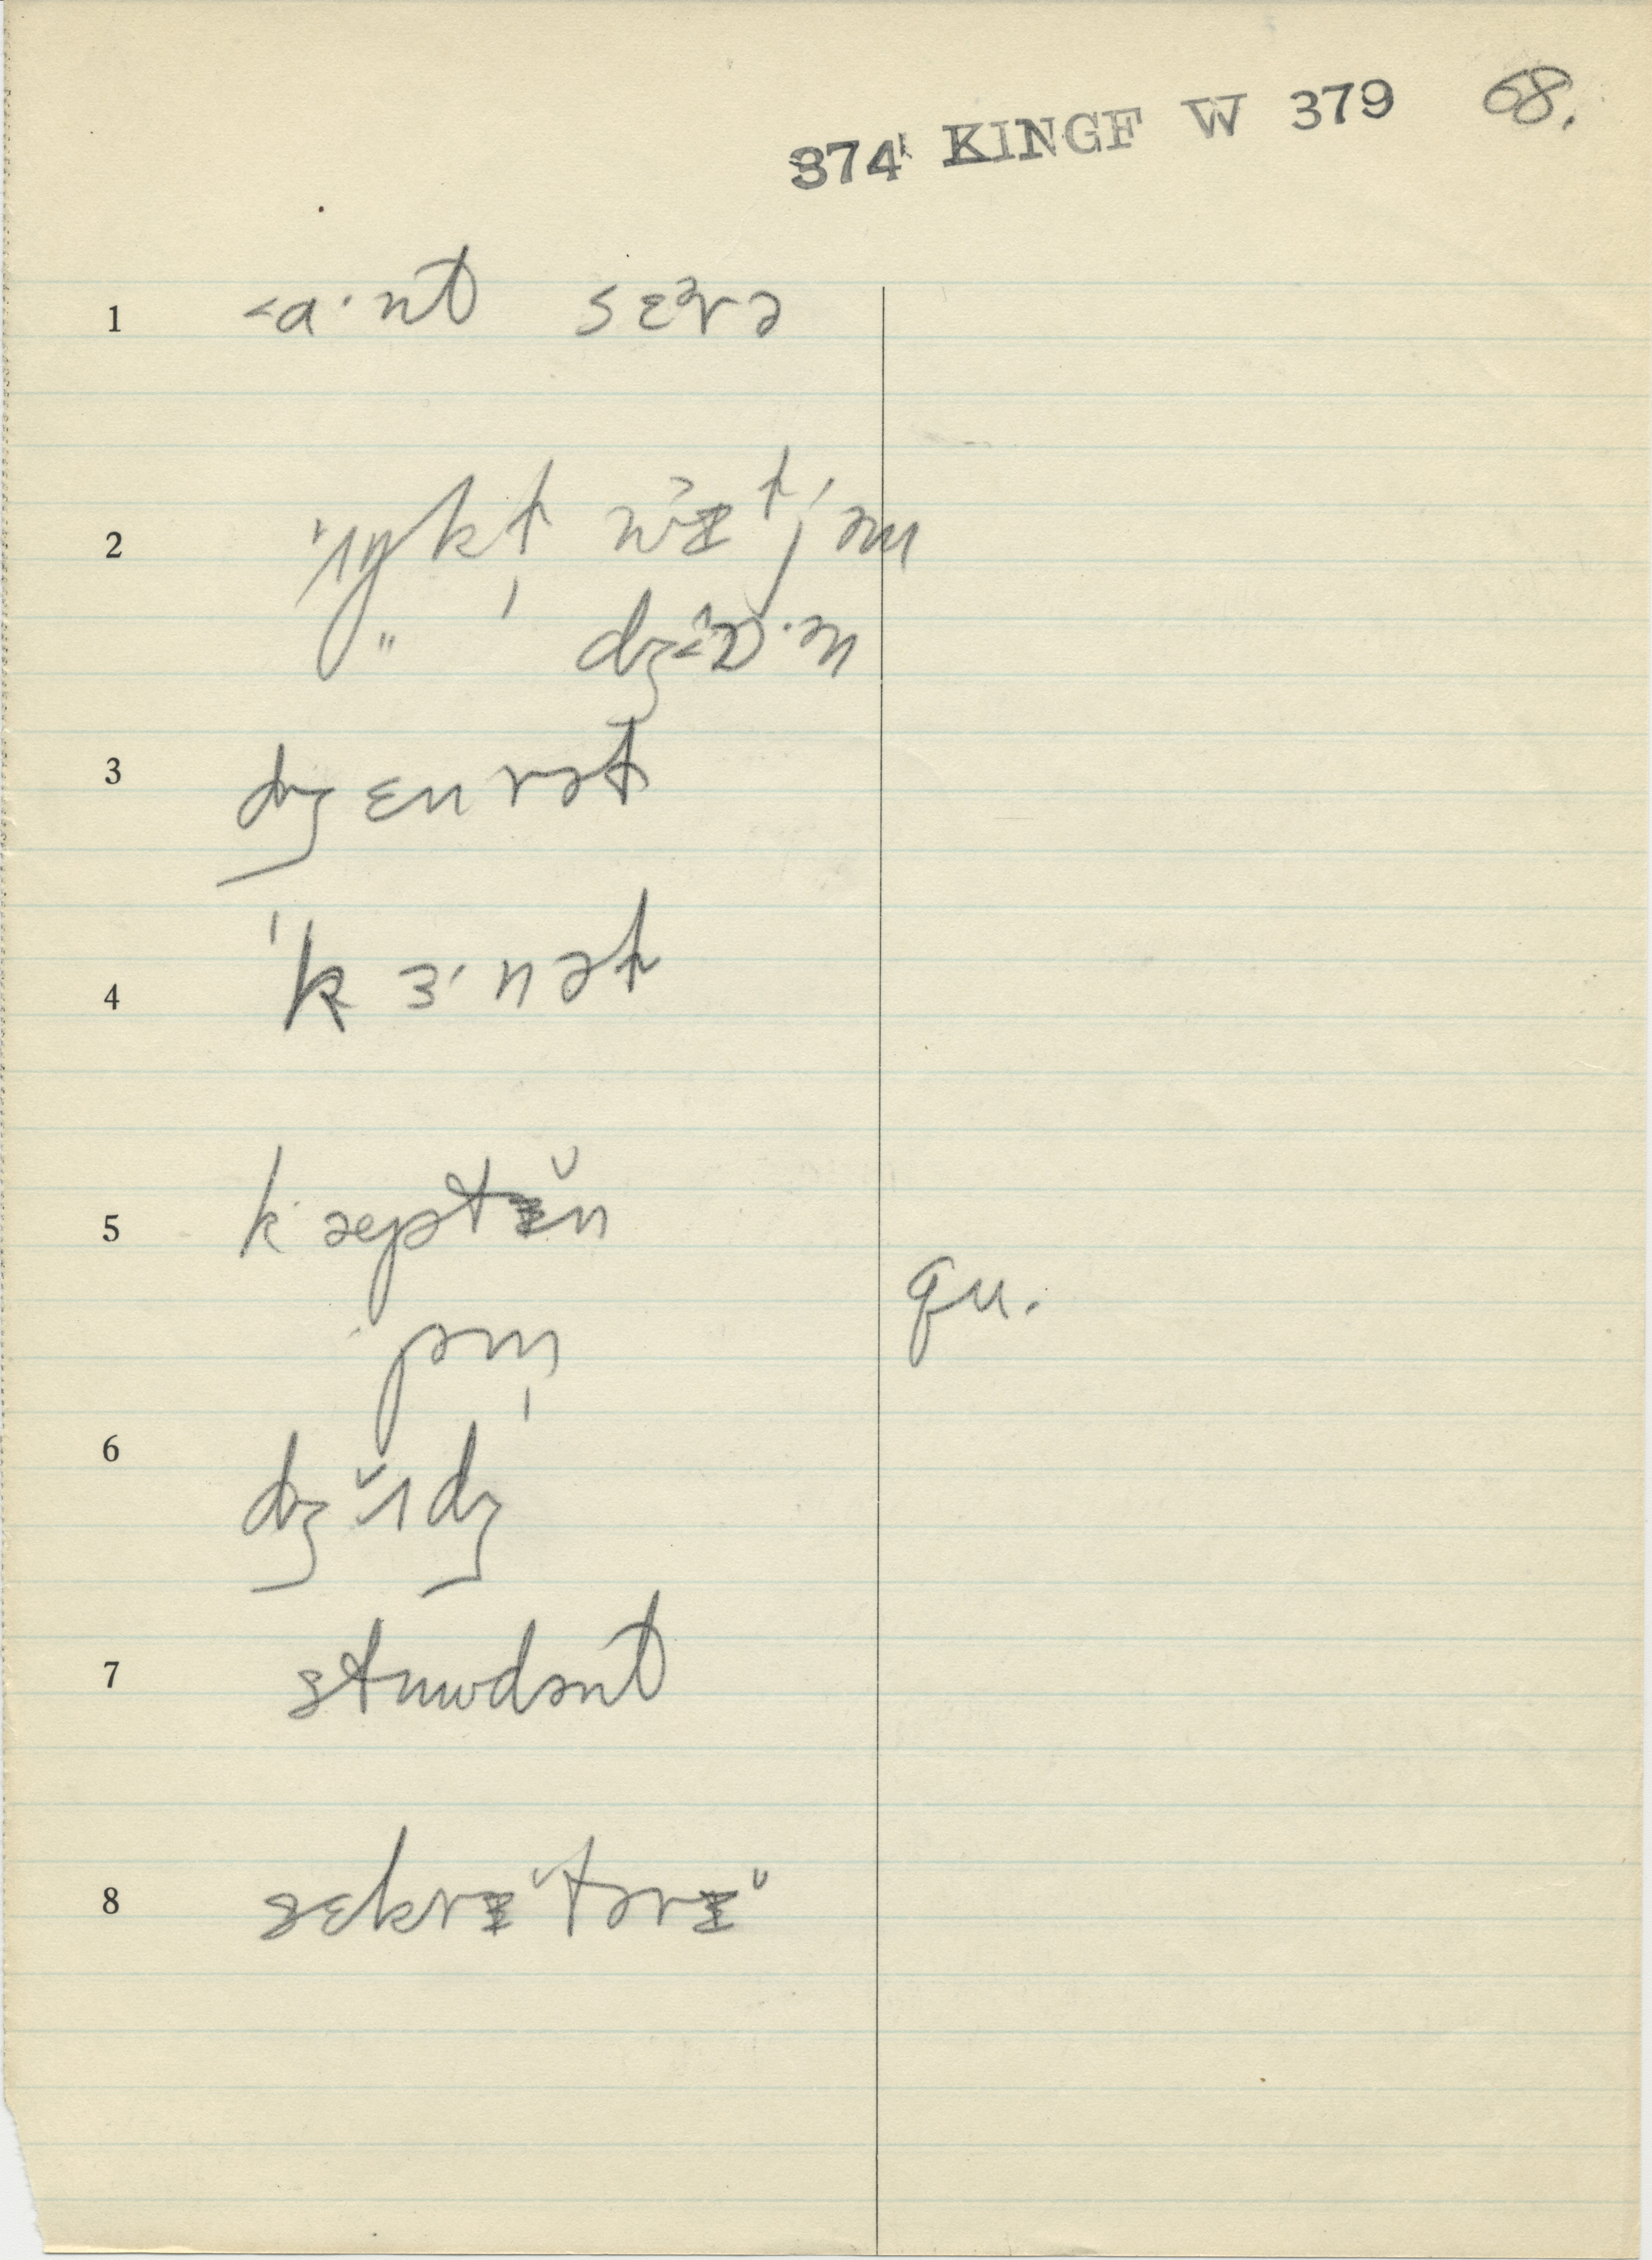 374 KINGF W 379 68.
1 <a·nt sɛᵊrə
2 ˈʌŋkḷ wɪljəm
" dʒɒ·ən
3 dʒɛnrəl
4 ˈkɜ·nəl
5 kæptɪ̆n
qu.
pm̩
6 dʒʌ̆dʒ
7 stuwdənt
8 sɛkrɪ̆tərɪ̆